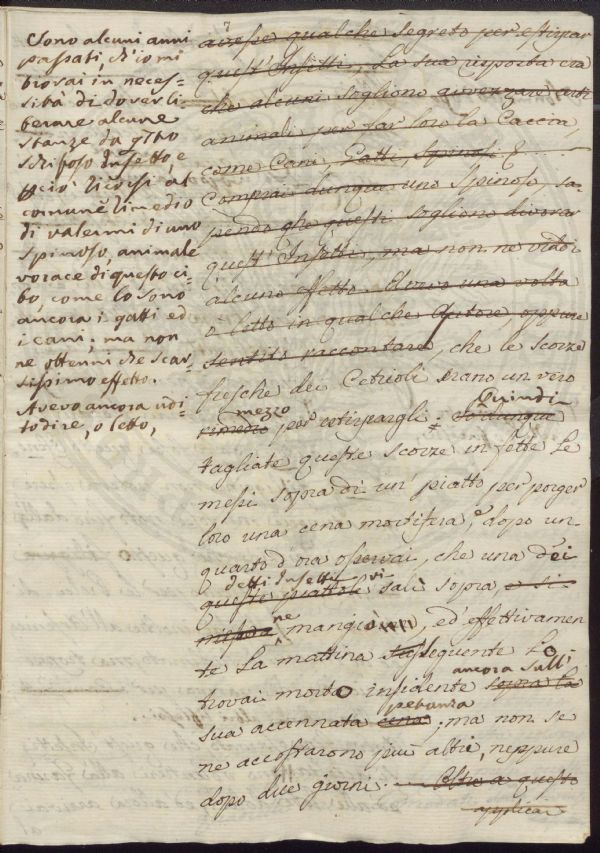 Sono alcuni anni
passati, ch'io mi
trovai in neces-
sità di dover li-
berare alcune
stanze da qsto
schifoso Insetto, e
pciò ricorsi al
comune rimedio
di valermi di uno
Spinoso, animale
vorace di questo ci-
bo, come lo sono
ancora i gatti ed
i cani; ma non
ne ottenni che scar-
sissimo effetto.
Avevo ancora udi-
to dire, o letto,
7
avesse qualche segreto per estirpar
quest'Insetti. La sua risposta era
che alcuni sogliono avvezzare certi
animali per far loro la Caccia,
come Cani, Gatti, Spinosi &
Comprai dunque uno Spinoso, sa-
pendo che questi sogliono divorar
quest'Insetti, ma non ne vidi
alcuno effetto. Avevo una volta
o letto in qualche Autore, oppure
sentito raccontare, che le scorze
fresche dei Cetrioli erano un vero
mezzo Quindi
rimedio per estirpargli: Io dunque
tagliate queste scorze in fette le
messi sopra di un piatto per porger
loro una cena mortifera, e dopo un
quarto d'ora osservai, che una dei
detti Insetti vi
queste piattole salì sopra, e si
ne
mangiò, ed effettivamen
te la mattina susseguente lo
ancora sull:
trovai morto insidente sopra la
pietanza
sua accennata cena; ma non se
ne accostarono più altri, neppure
dopo due giorni. Oltre a questo
applicai